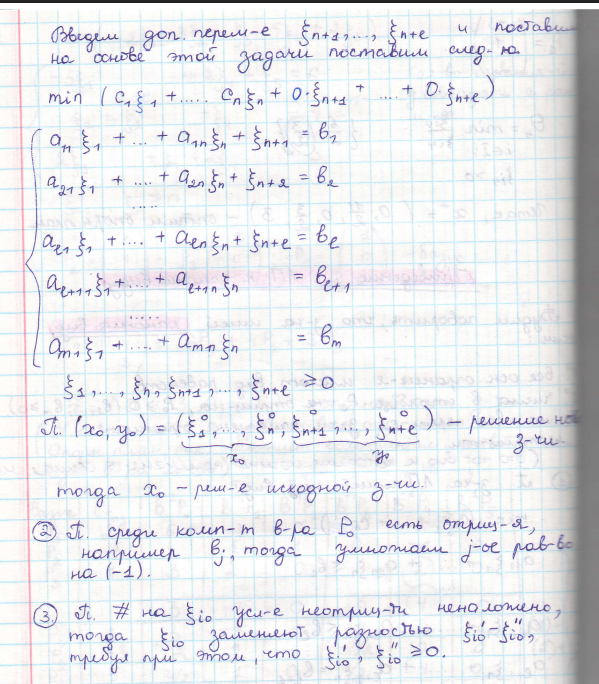 Введем доп. перем-е ξn+1,..., ξn+e и поставим
на основе этой задачи поставим след-ю
min (c1ξ1 + .... cnξn + 0·ξn+1 + .... + 0·ξn+e)
a11ξ1 + ... + a1nξn + ξn+1 = b1
a21ξ1 + .... + a2nξn + ξn+2 = b2
....
ae1ξ1 + .... + aenξn + ξn+e = be
ae+1 1ξ1 + .... + ae+1 nξn = be+1
.....
am1ξ1 + .... + amnξn = bm
ξ1,..., ξn, ξn+1,..., ξn+e ≥ 0
П. (x0, y0) = (ξ1°,..., ξn°, ξn+1°,..., ξn+e°) – решение
x0 y0 з-чи.
тогда x0 – реш-е исходной з-чи.
② П. среди комп-т в-ра P0 есть отриц-я,
например bj, тогда умножаем j-ое рав-во
на (-1).
③ П. # на ξi0 усл-е неотриц-ти неналожено,
тогда ξi0 заменяют разностью ξi0' - ξi0'',
требуя при этом, что ξi0', ξi0'' ≥ 0.